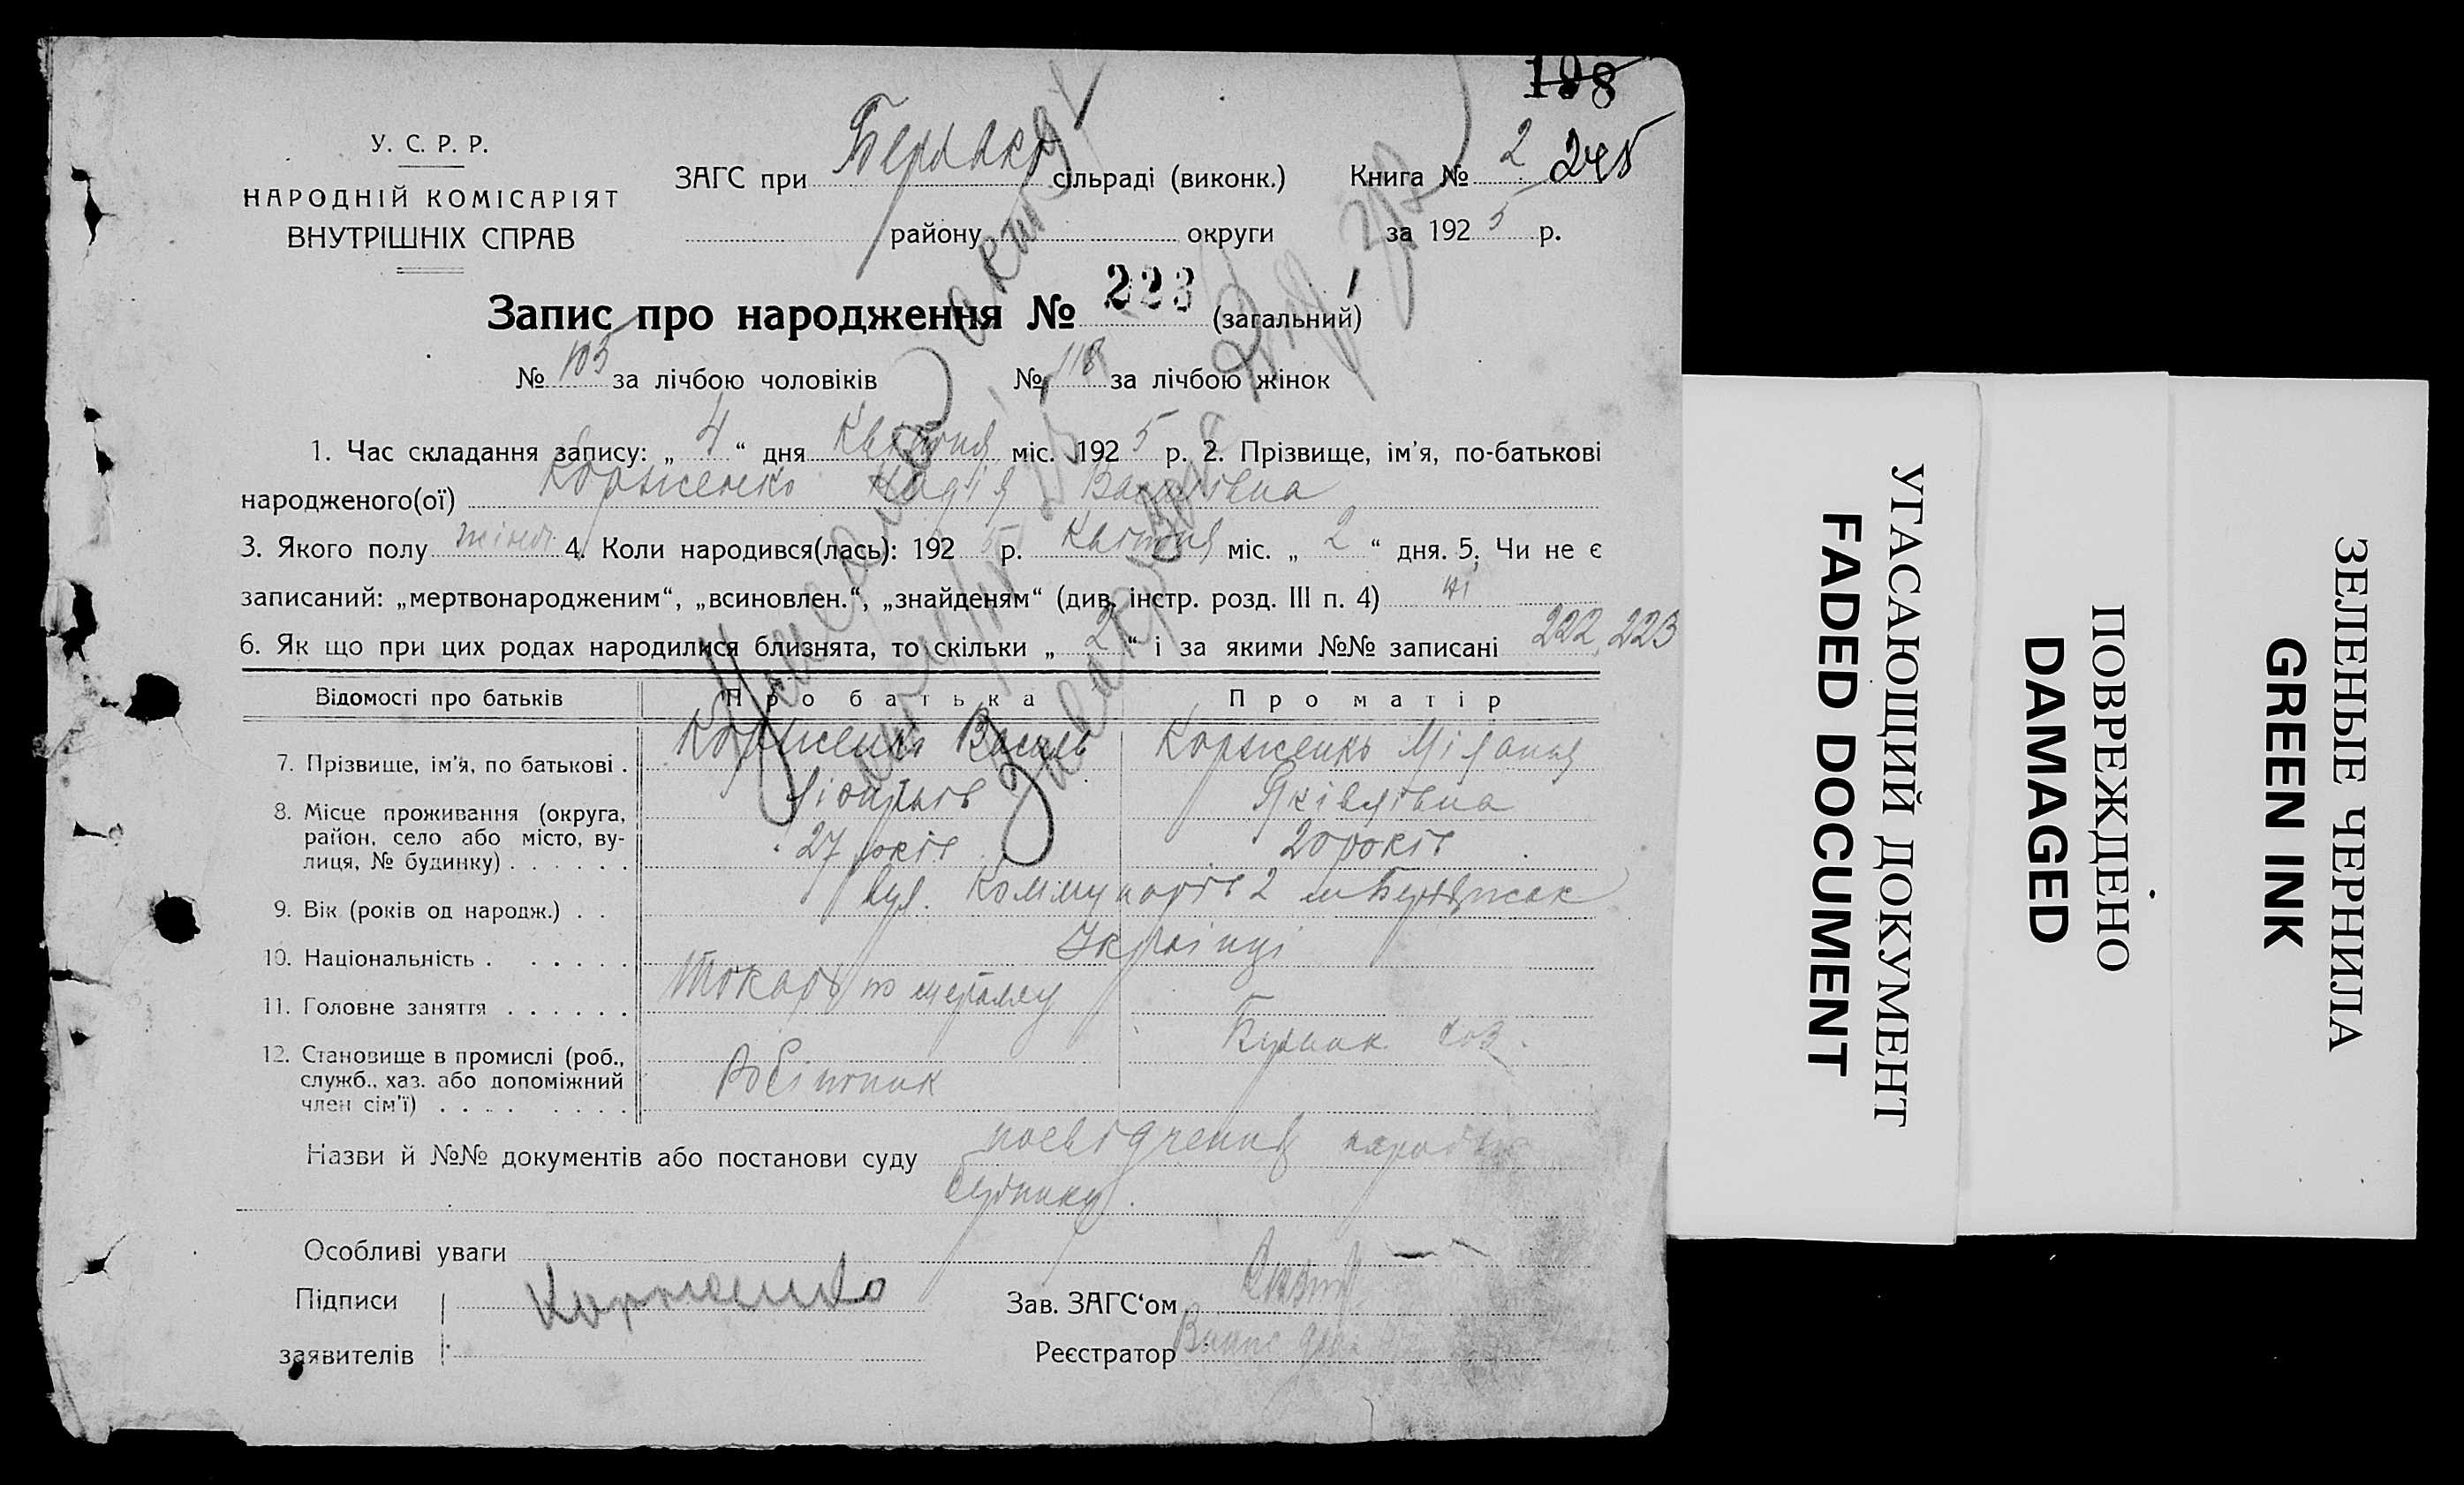 198
У. С. Р. Р.
НАРОДНІЙ КОМІСАРІЯТ
ВНУТРІШНІХ СПРАВ
ЗАГС при сільраді (виконк.)
Книга № 2 245
району округи за 1925 р.
Запис про народження № 223 (загальний)
№ 103 за лічбою чоловіків № 118 за лічбою жінок
1. Час складання запису: „ 4 “ дня Квітня міс. 1925 р. 2. Прізвище, ім'я, по-батькові
народженого(ої) Корженко Надія Василівна
3. Якого полу жіноч. 4. Коли народився(лась): 1925 р. Квітня міс. „ 2 “ дня. 5. Чи не є
записаний: „мертвонародженим“, „всиновлен.“, „знайденям“ (див. інстр. розд. III п. 4) ні
6. Як що при цих родах народилися близнята, то скільки „ 2 “ і за якими №№ записані 222, 223
Відомості про батьків Про батька Про матір
7. Прізвище, ім'я, по батькові . Корженко Василь Корженко Міланія
Яківлівна
8. Місце проживання (округа,
район, село або місто, ву-
лиця, № будинку) . . . . . .
27 років 20 років
вул. Коммунарів 2
9. Вік (років од народж.) . .
Українці
10. Національність . . . . . .
Токарь по металлу
11. Головне заняття . . . . . .
12. Становище в промислі (роб.,
служб., хаз. або допоміжний
член сім'ї) . . . . . . . .
Робітник
Назви й №№ документів або постанови суду посвідчення
будинку.
Особливі уваги
Підписи Корженко Зав. ЗАГС‘ом
заявителів Реєстратор
УГАСАЮЩИЙ ДОКУМЕНТ
FADED DOCUMENT
ПОВРЕЖДЕНО
DAMAGED
ЗЕЛЕНЫЕ ЧЕРНИЛА
GREEN INK